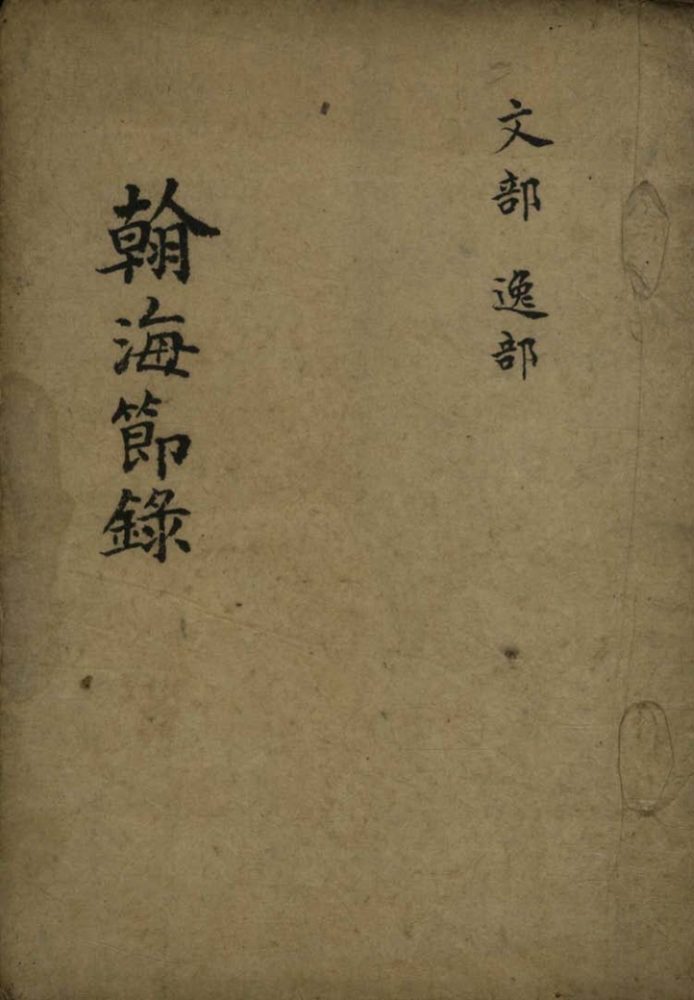 文部 逸部
翰海節錄